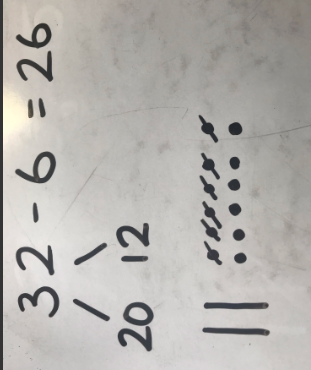 32 - 6 = 26
20 12